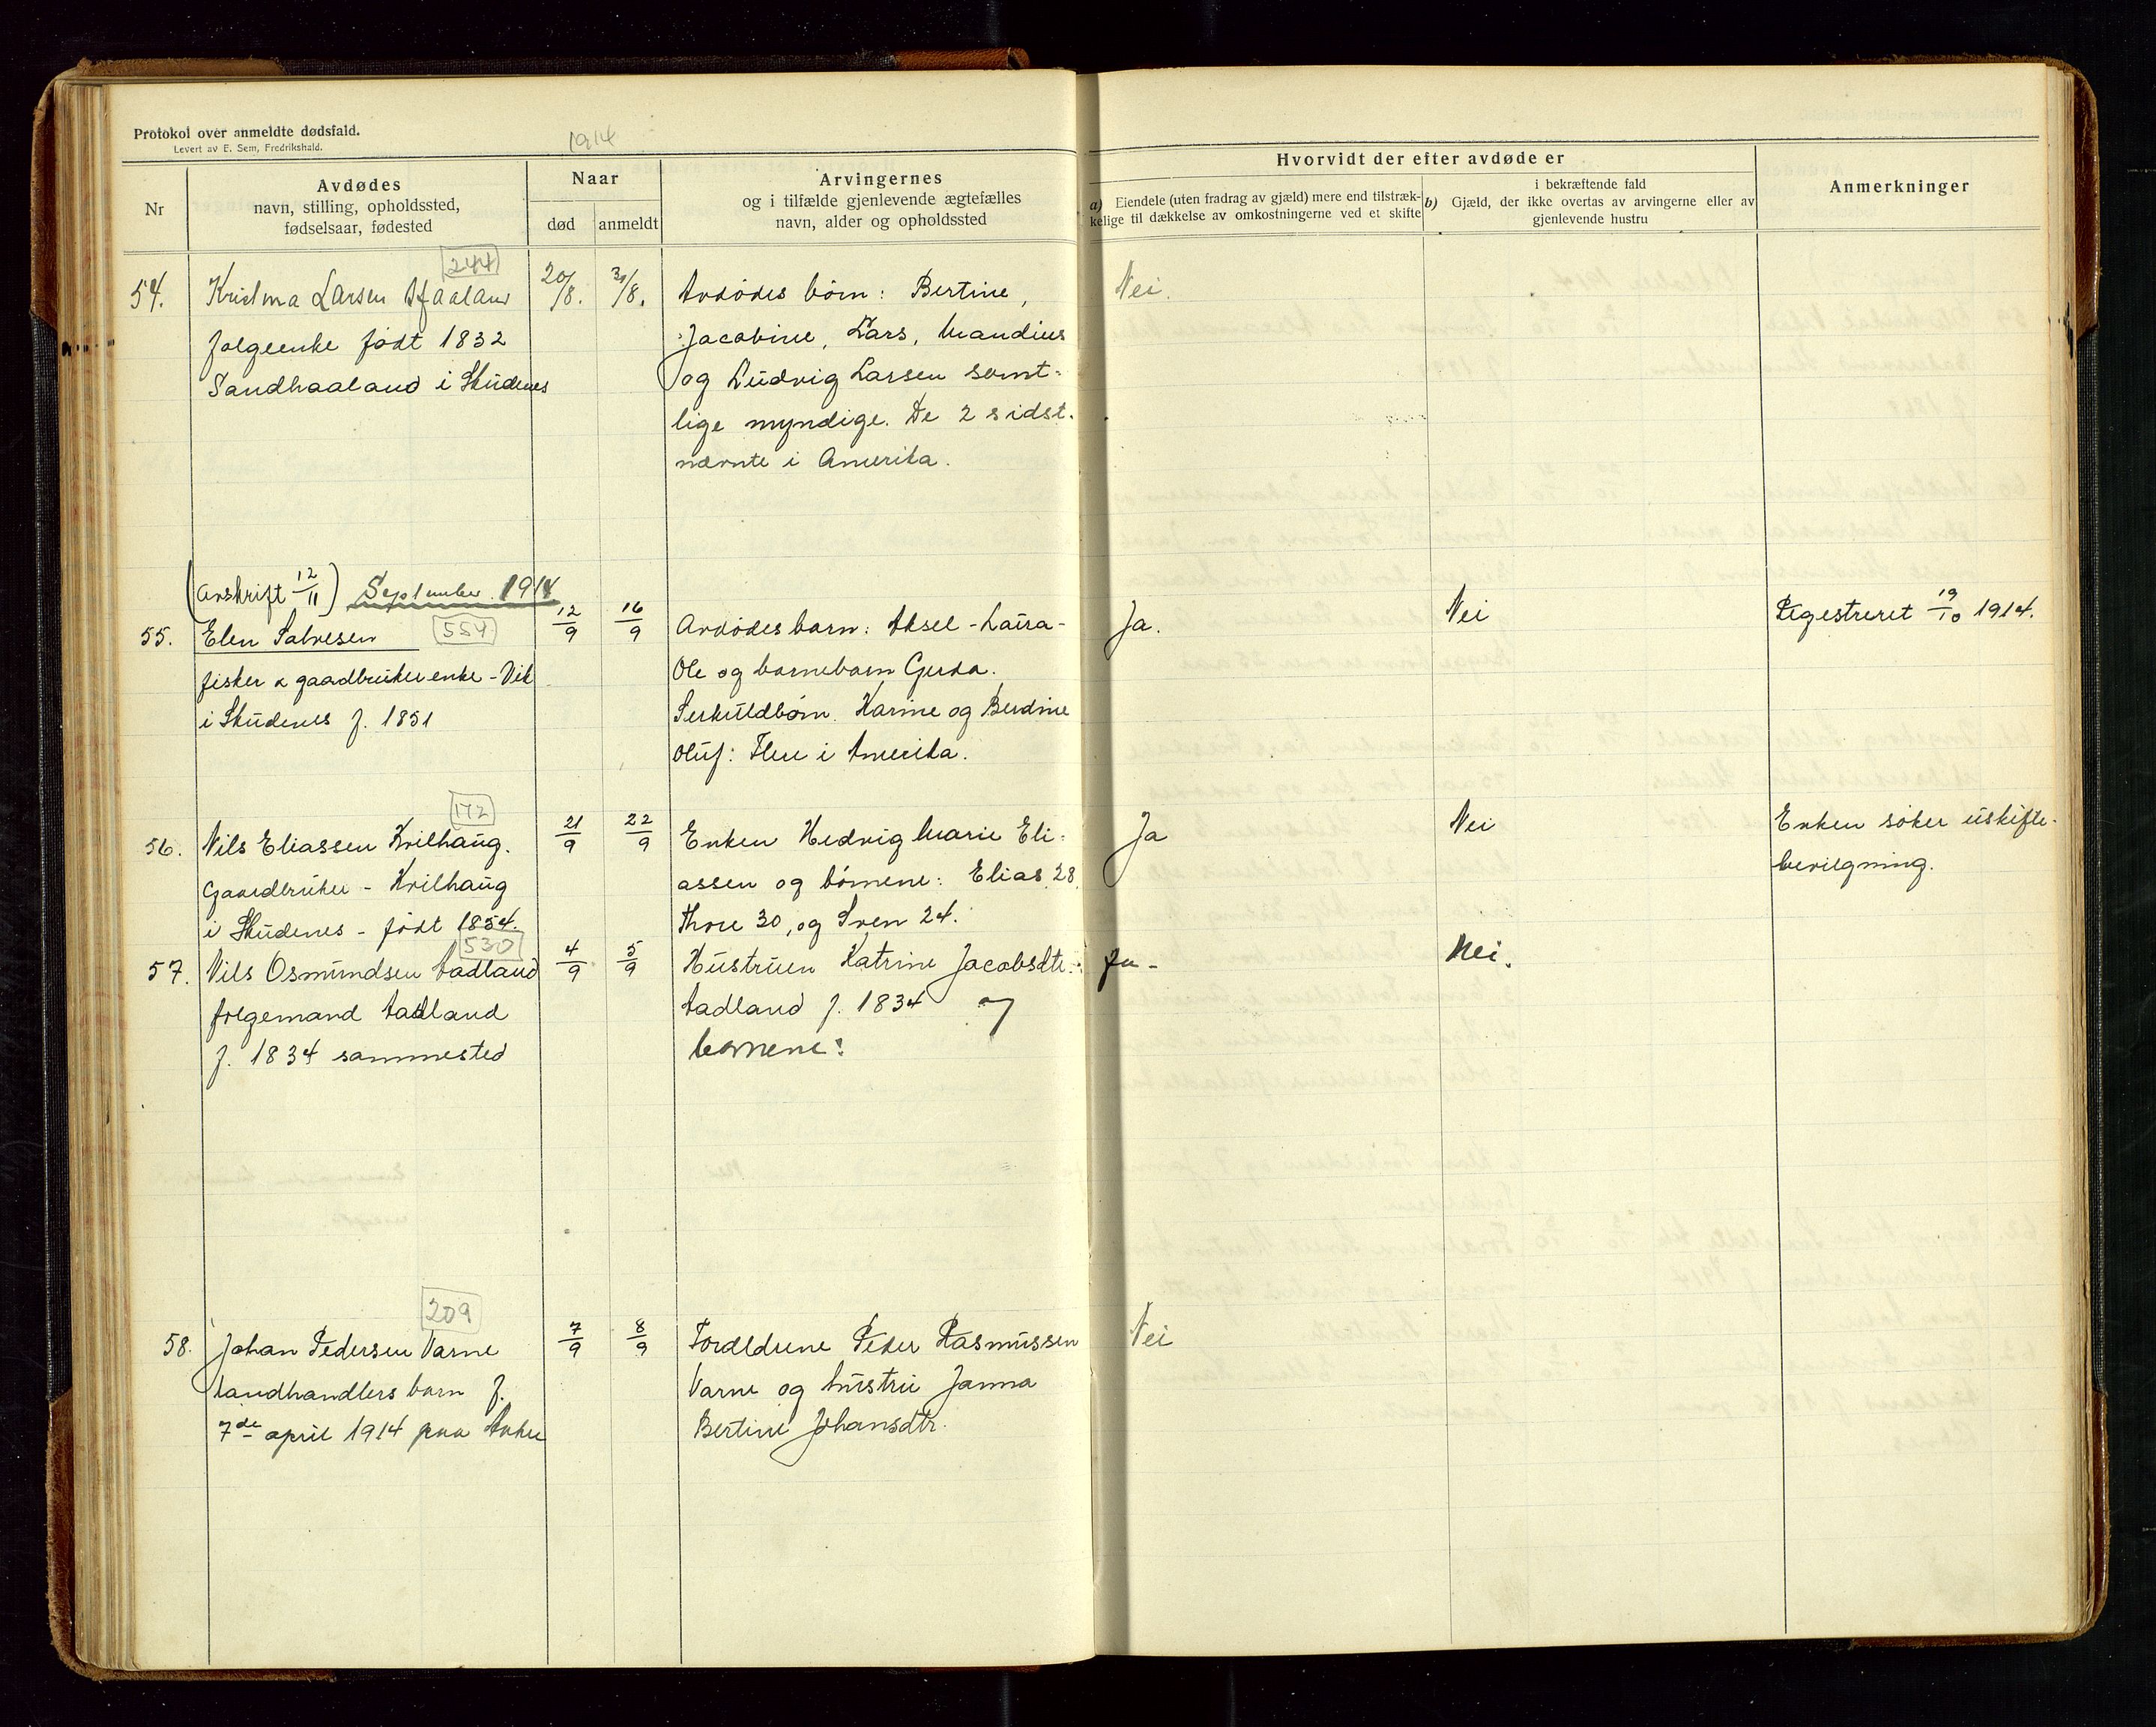 Protokol over anmeldte dødsfald.
Levert av E. Sem, Fredrikshald.
1914
Nr
Avdødes
navn, stilling, opholdssted,
fødselsaar, fødested
Naar
død
anmeldt
Arvingernes
og i tilfælde gjenlevende ægtefælles
navn, alder og opholdssted
Hvorvidt der efter avdøde er
a) Eiendele (uten fradrag av gjæld) mere end tilstræk-
kelige til dækkelse av omkostningerne ved et skifte
i bekræftende fald
b) Gjæld, der ikke overtas av arvingerne eller av
gjenlevende hustru
Anmerkninger
244
54.
Larsen
folgeenke født 1832
Sandhaaland i Skudenes
20/8.
/8.
Avdødes børn: Bertine,
Jacobine, Lars, Mandius
og Ludvig Larsen samt-
lige myndige. De 2 sidst-
nævnte i Amerika.
Nei.
(Avskrift 12/11) September 1914
55.
Elen Salvesen
554
fisker & gaardbruker enke - Vik
i Skudenes f. 1851
12/9
16/9
Avdødes barn: Aksel - Laura -
Ole og barnebarn Gerda.
Serkuldbørn. Karine og Berdine
Oluf: Flere i Amerika.
Ja.
Nei
Registreret 19/10 1914.
172
56.
Nils Eliassen Kvilhaug.
Gaardbruker - Kvilhaug
i Skudenes - født 1854.
21/9
22/9
Enken Hedvig Marie Eli-
assen og børnene: Elias 28,
Thore 30, og Sven 24.
Ja
Nei
Enken søker uskifte-
bevilgning.
530
57.
Nils Osmundsen Aadland
folgemand Aadland
f. 1834 sammested
4/9
5/9
Hustruen Katrine Jacobsdtr.
Aadland f. 1834 og
børnene:
Ja -
Nei.
209
58.
Johan Pedersen Varne
landhandlers barn f.
7de april 1914 paa
7/9
8/9
Forældrene Peder Rasmussen
Varne og hustru Janna
Bertine Johansdtr.
Nei